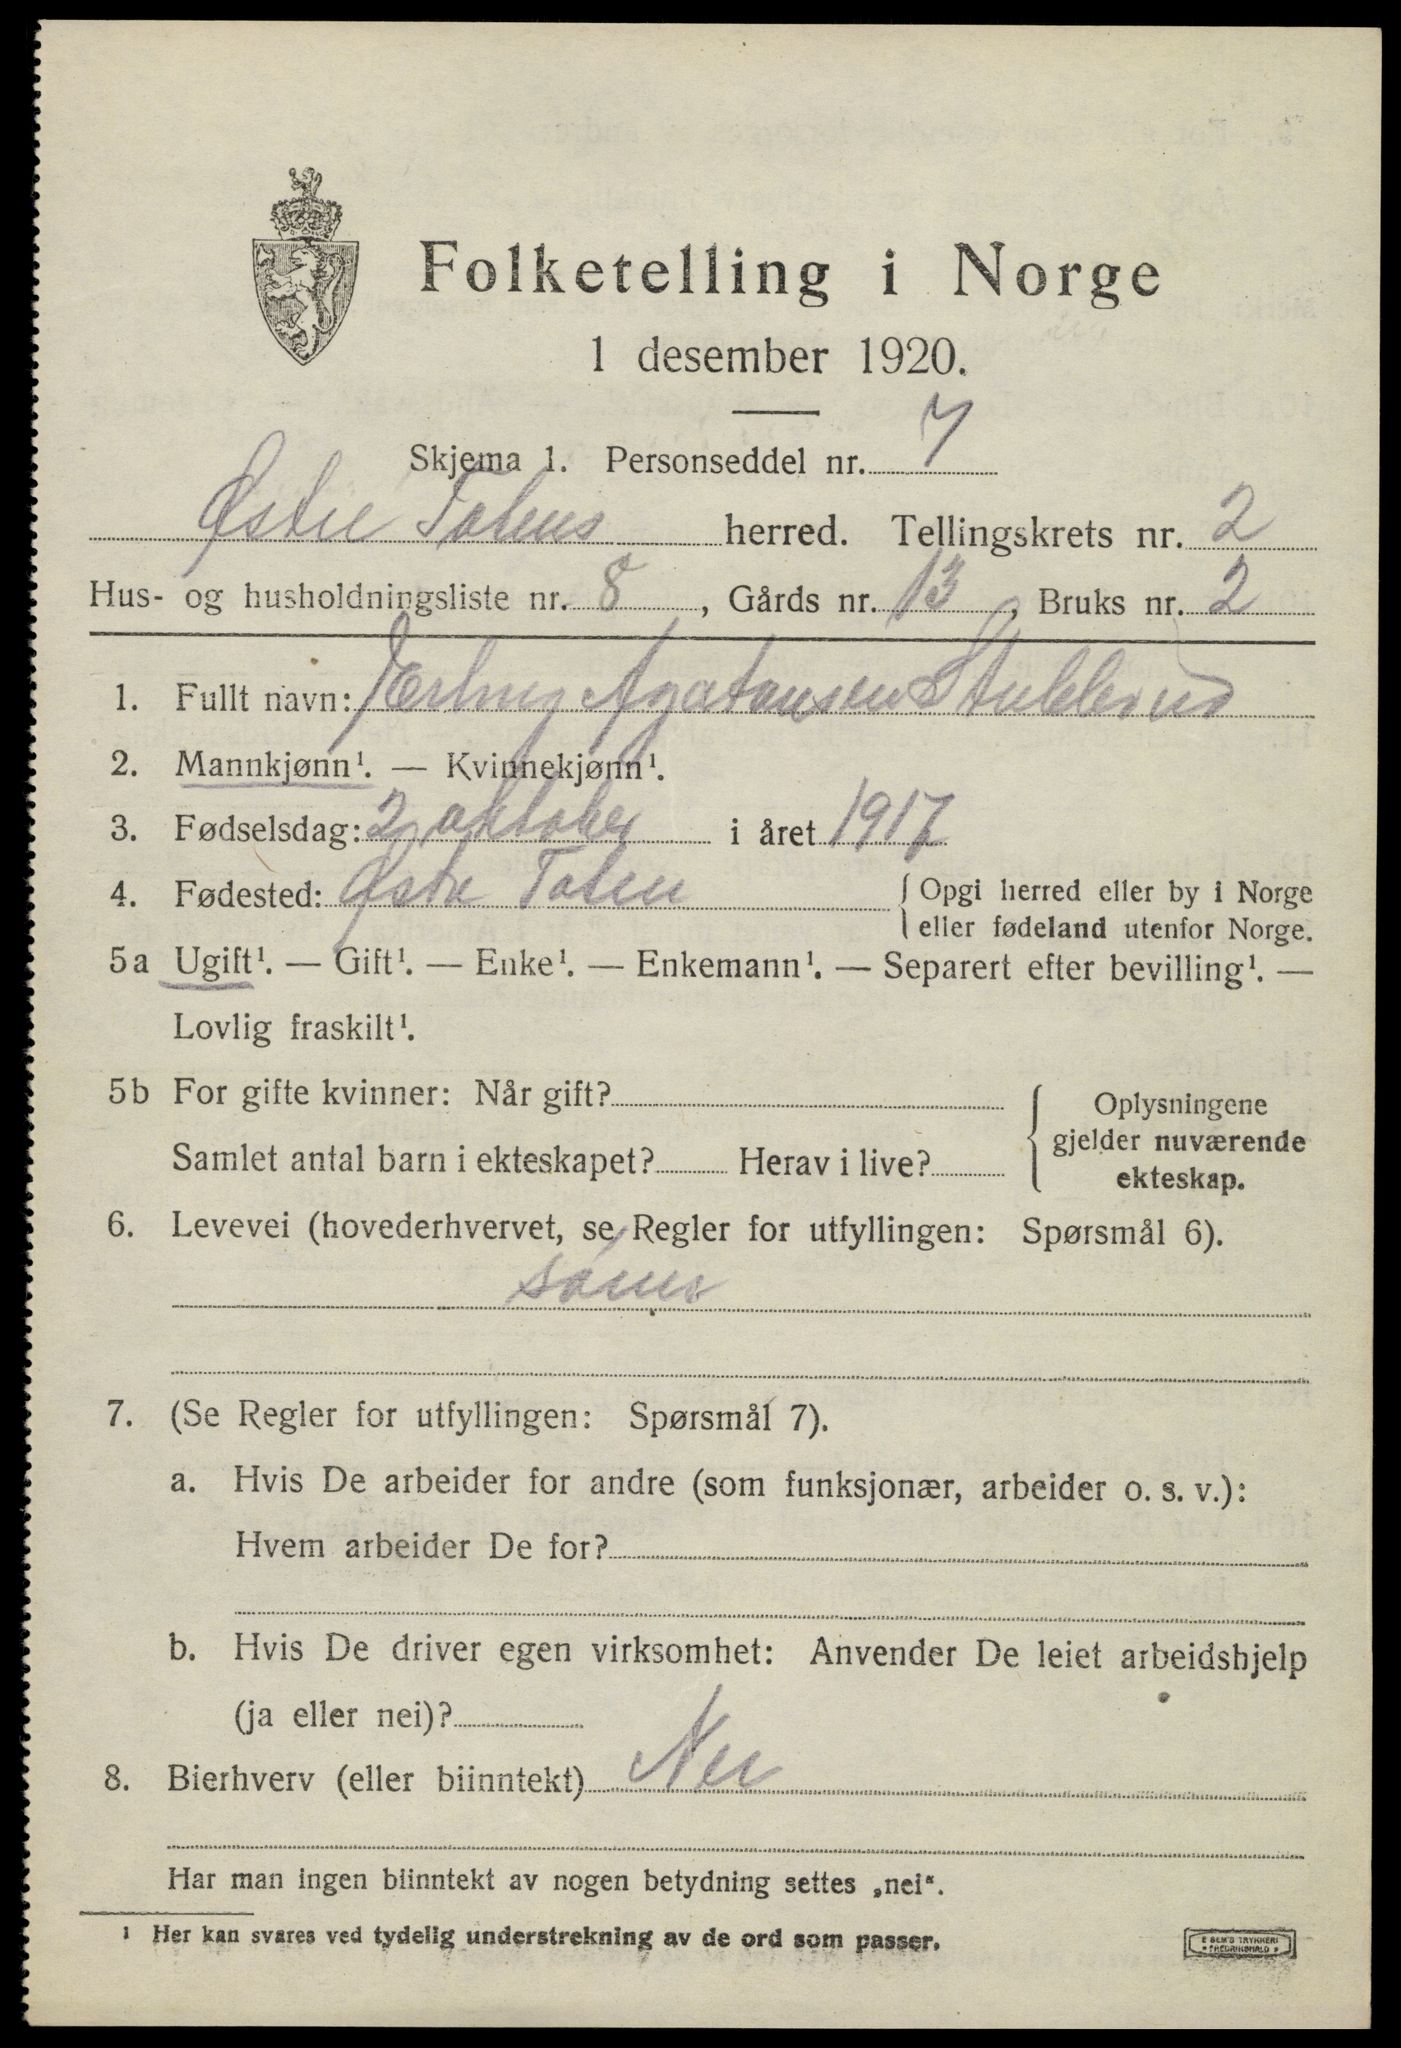 Folketelling i Norge
1 desember 1920.
Skjema 1. Personseddel nr. 7
Østre Totens herred. Tellingskrets nr. 2
Hus- og husholdningsliste nr. 8, Gårds nr. 13, Bruks nr. 2
1. Fullt navn: Erling Agatonsen Stubberud
2. Mannkjønn¹. — Kvinnekjønn¹.
3. Fødselsdag: 2 oktober i året 1917
4. Fødested: Østre Toten { Opgi herred eller by i Norge
eller fødeland utenfor Norge.
5a Ugift¹. — Gift¹. — Enke¹. — Enkemann¹. — Separert efter bevilling¹. —
Lovlig fraskilt¹.
5b For gifte kvinner: Når gift?
Samlet antal barn i ekteskapet? Herav i live?
{ Oplysningene
gjelder nuværende
ekteskap.
6. Levevei (hovederhvervet, se Regler for utfyllingen: Spørsmål 6).
sønn
7. (Se Regler for utfyllingen: Spørsmål 7).
a. Hvis De arbeider for andre (som funksjonær, arbeider o. s. v.):
Hvem arbeider De for?
b. Hvis De driver egen virksomhet: Anvender De leiet arbeidshjelp
(ja eller nei)?
8. Bierhverv (eller biinntekt) Nei
Har man ingen biinntekt av nogen betydning settes „nei“.
¹ Her kan svares ved tydelig understrekning av de ord som passer.
E SEM'S TRYKKERI
FREDRIKSHALD